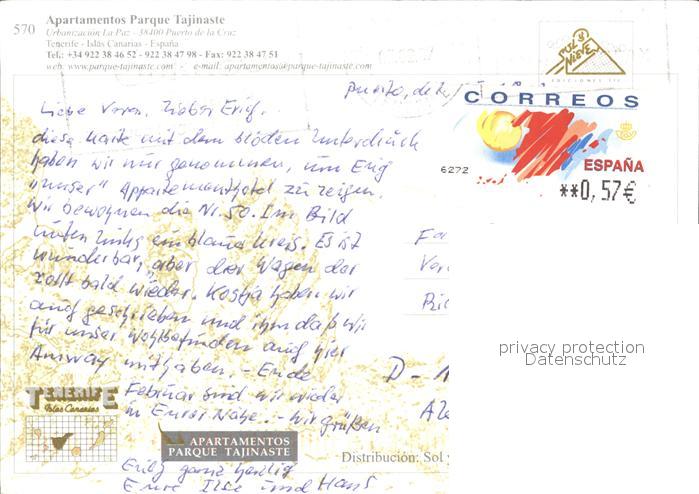 570 Apartamentos Parque Tajinaste
Urbanización La Paz - 38400 Puerto de la Cruz
Tenerife - Islas Canarias - España
Tel.: +34 922 38 46 52 - 922 38 47 98 - Fax: 922 38 47 51
web: www.parque-tajinaste.com - e-mail: apartamentos@parque-tajinaste.com
SOL Y NIEVE
EDICIONES
CORREOS
6272
ESPAÑA
**0,57€
Puerto, de
Liebe Vera, lieber Erich.
diese Karte mit dem blöden Unterdruck
haben wir nur genommen, um Erich
"unser" Appartementhotel zu zeigen.
Wir bewohnen die Nr. 50. Im Bild
unten links ein blauer Kreis. Es ist
wunderbar, aber der Wagen der
rollt bald wieder. Kostja haben wir
auch geschrieben und ihm daß wir
für unser Wohlbefinden auch hier
Amway mithaben. - Ende
Februar sind wir wieder
in Eurer Nähe. - Wir grüßen
Euch ganz herzlich
Eure Ilse und Hans
D-
privacy protection
Datenschutz
TENERIFE
Islas Canarias
APARTAMENTOS
PARQUE TAJINASTE
Distribución: Sol y